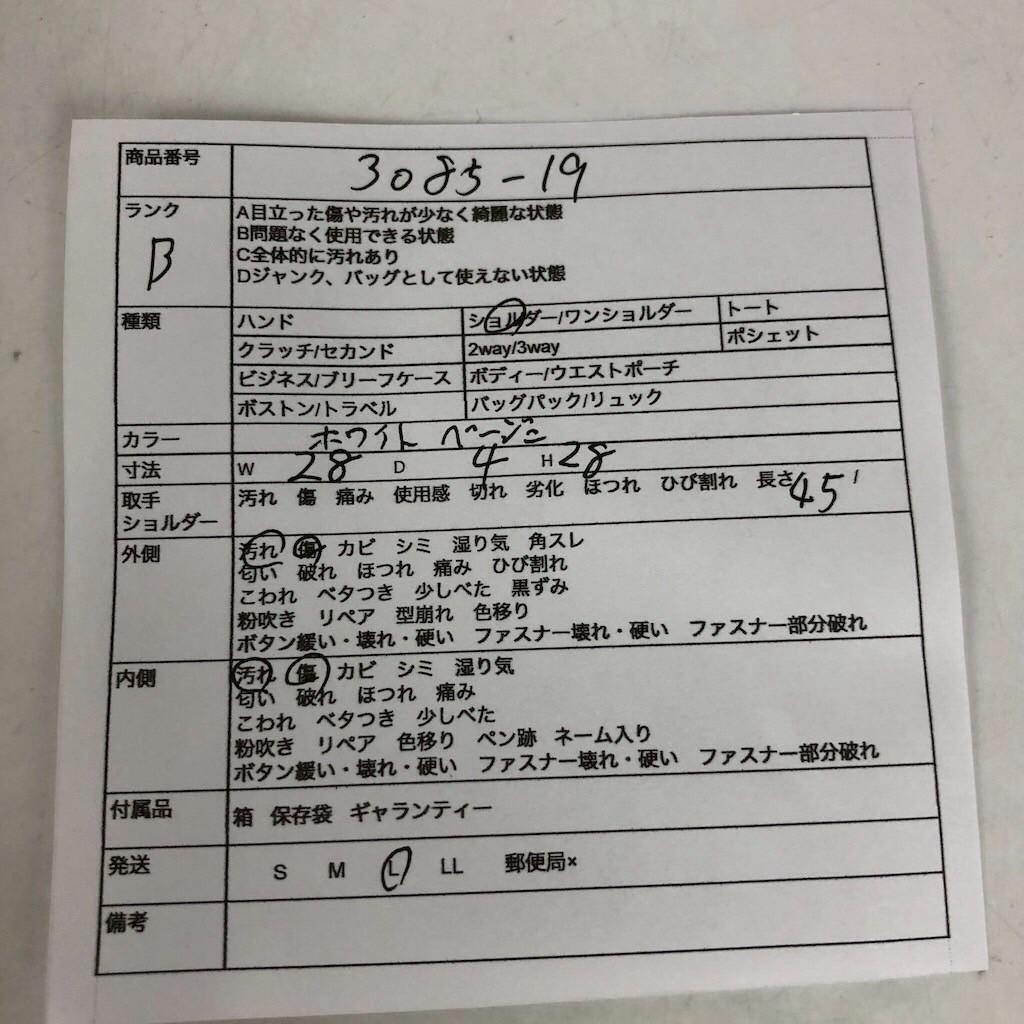 商品番号 3085-19
ランク B
A目立った傷や汚れが少なく綺麗な状態
B問題なく使用できる状態
C全体的に汚れあり
Dジャンク、バッグとして使えない状態
種類 ハンド ショルダー/ワンショルダー トート
クラッチ/セカンド 2way/3way ポシェット
ビジネス/ブリーフケース ボディー/ウエストポーチ
ボストン/トラベル バッグパック/リュック
カラー ホワイト ベージュ
寸法 W 28 D 4 H 28
取手 汚れ 傷 痛み 使用感 切れ 劣化 ほつれ ひび割れ 長さ 45
ショルダー
外側 汚れ 傷 カビ シミ 湿り気 角スレ
匂い 破れ ほつれ 痛み ひび割れ
こわれ ベタつき 少しべた 黒ずみ
粉吹き リペア 型崩れ 色移り
ボタン緩い・壊れ・硬い ファスナー壊れ・硬い ファスナー部分破れ
内側 汚れ 傷 カビ シミ 湿り気
匂い 破れ ほつれ 痛み
こわれ ベタつき 少しべた
粉吹き リペア 色移り ペン跡 ネーム入り
ボタン緩い・壊れ・硬い ファスナー壊れ・硬い ファスナー部分破れ
付属品 箱 保存袋 ギャランティー
発送 S M L LL 郵便局×
備考